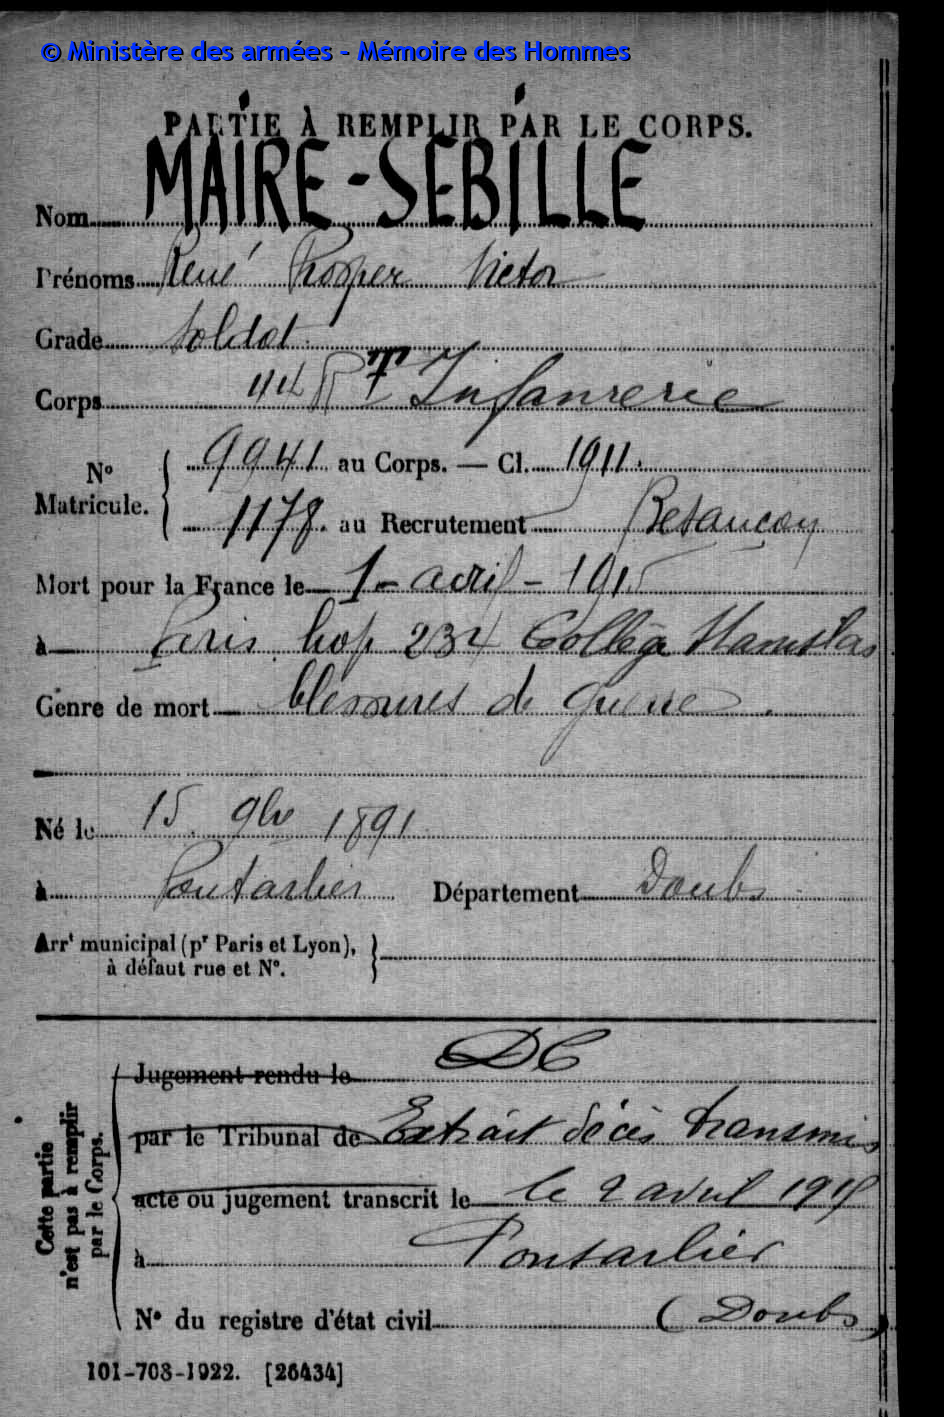 © Ministère des armées - Mémoire des Hommes
PARTIE À REMPLIR PAR LE CORPS.
Nom MAIRE-SEBILLE
Prénoms René Prosper Victor
Grade Soldat
Corps 44 RT Infanterie
N° Matricule. 9941 au Corps. — Cl. 1911.
1178. au Recrutement Besançon
Mort pour la France le 1- avril - 1915
à Paris hop 234 Collège Stanislas
Genre de mort blessures de guerre.
Né le 15. 9bre 1891
à Pontarlier Département Doubs
Arrt municipal (pr Paris et Lyon),
à défaut rue et N°.
DC
Jugement rendu le
par le Tribunal de Extrait décès transmis
acte ou jugement transcrit le le 2 avril 1915
à Pontarlier
N° du registre d'état civil (Doubs)
Cette partie
n'est pas à remplir
par le Corps.
101-708-1922. [26434]